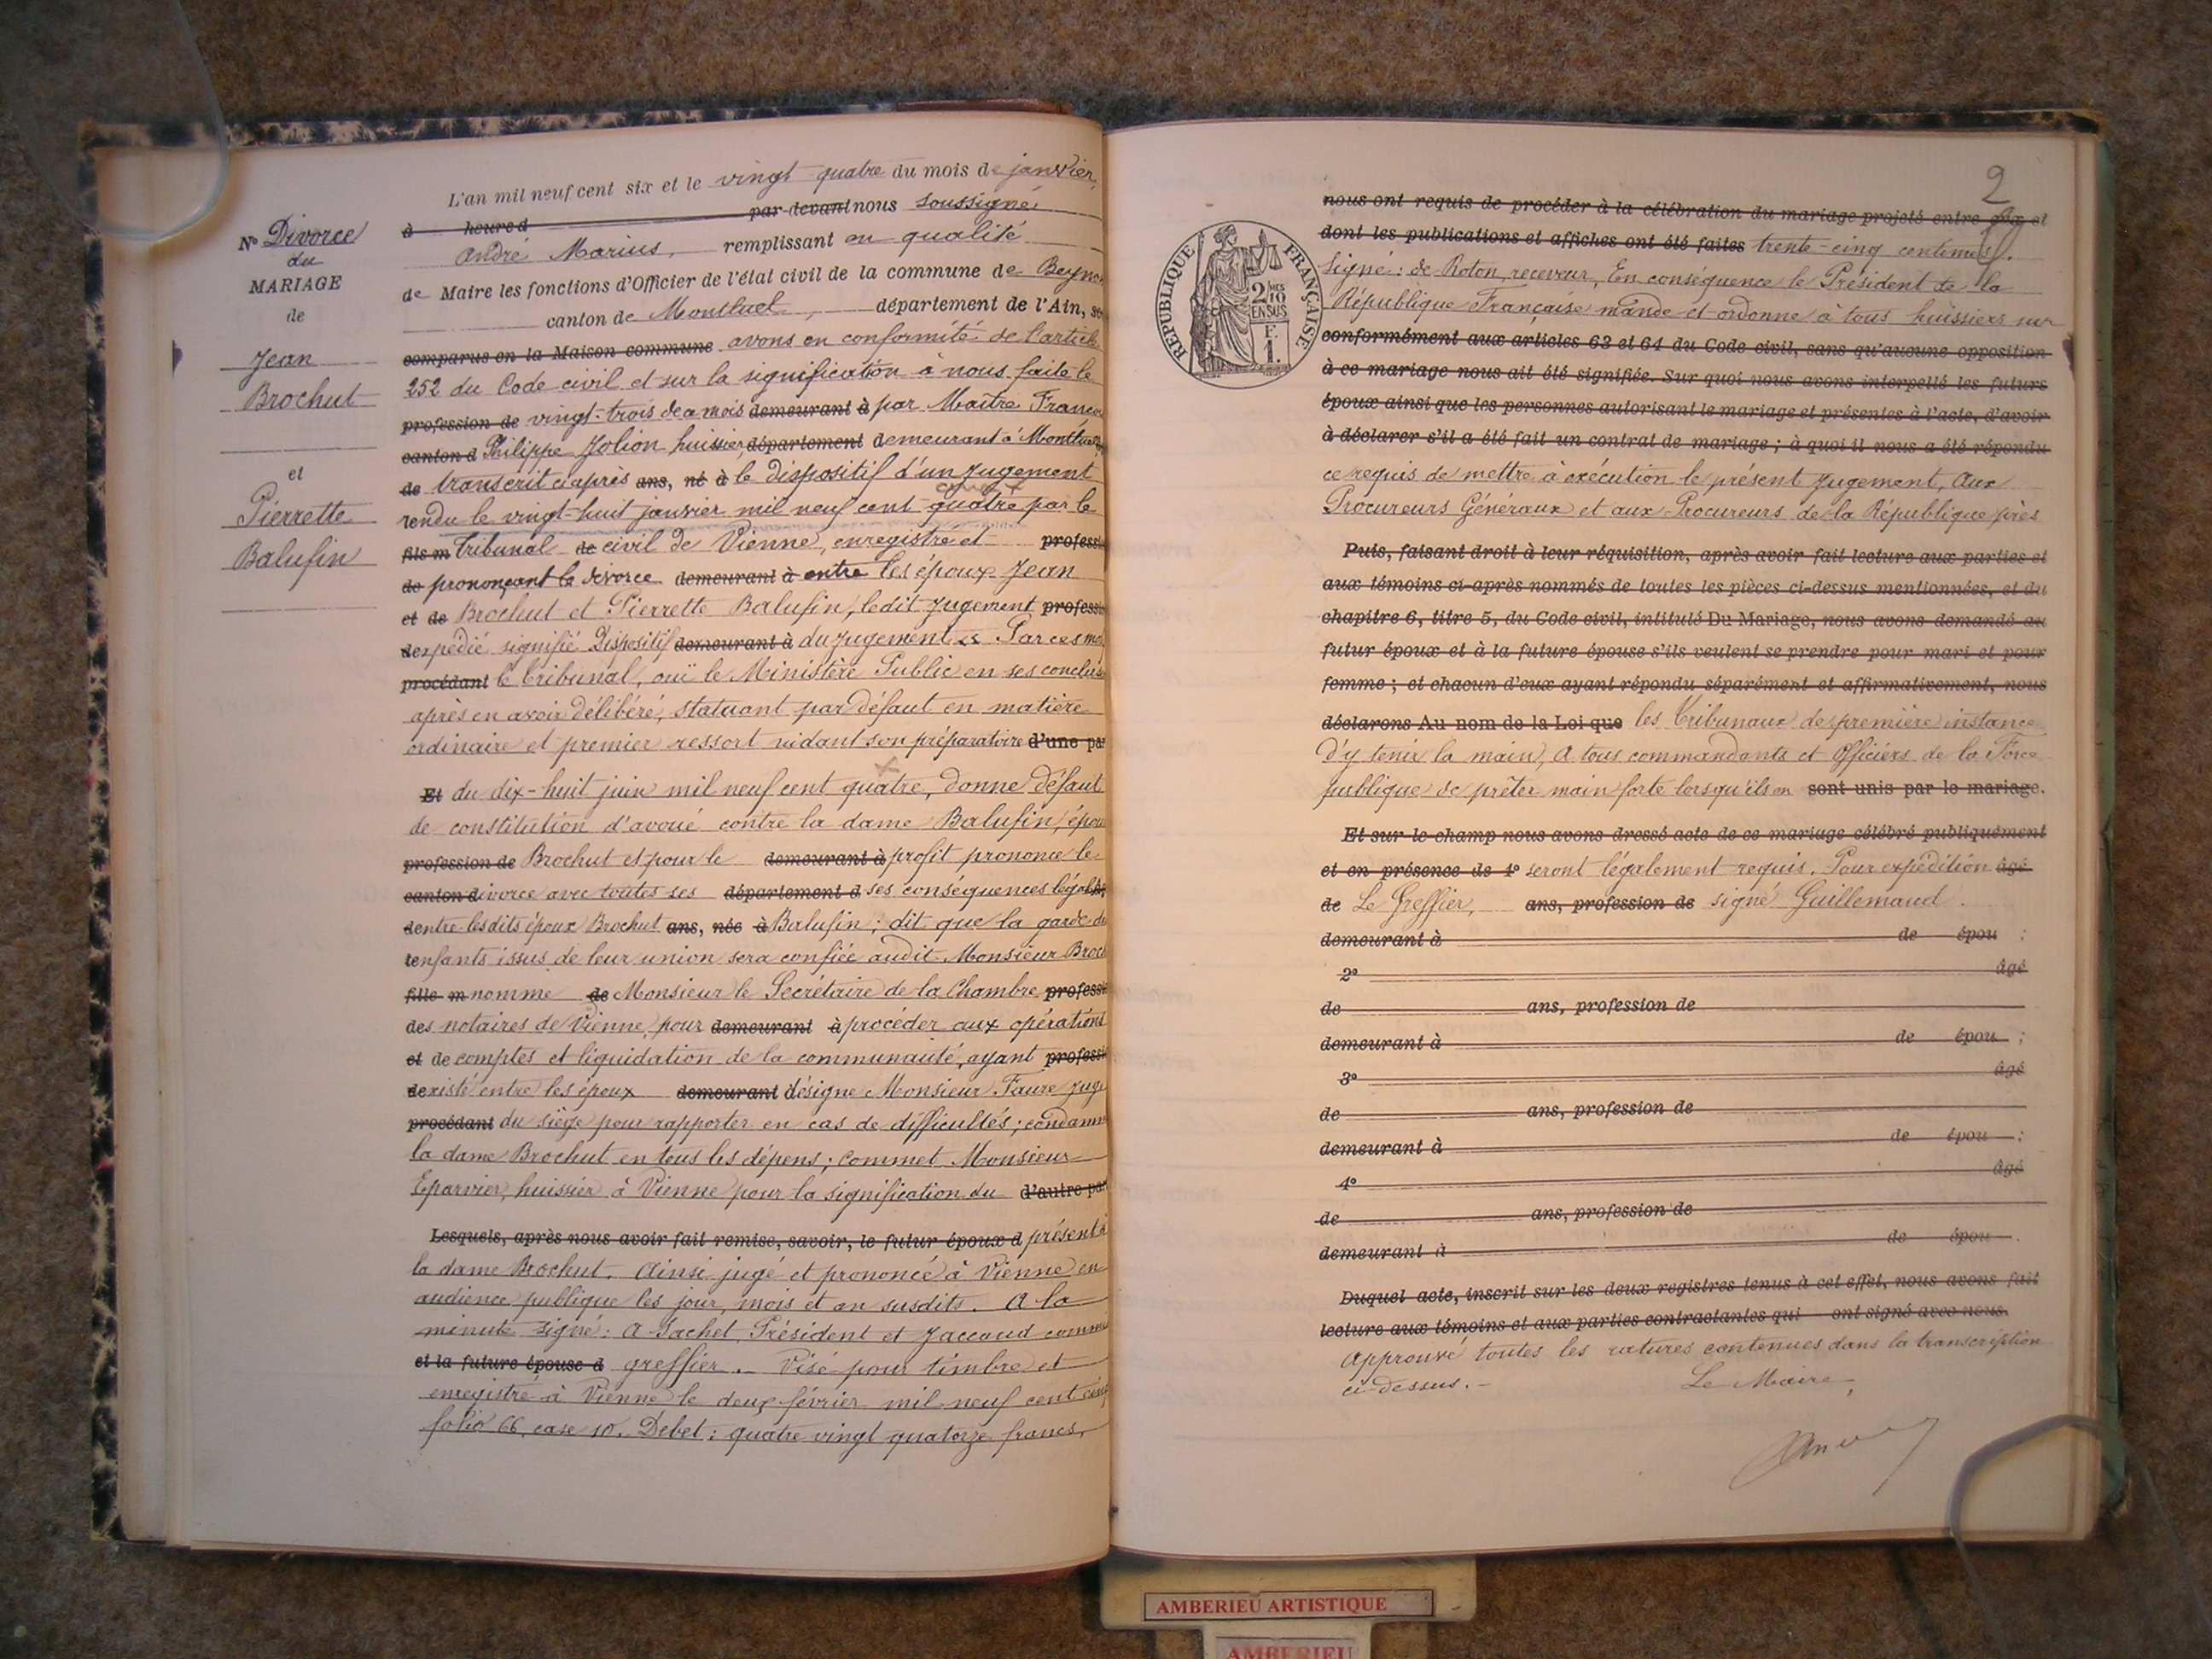 L'an mil neuf cent six et le vingt quatre du mois de janvier,
à heure d par-devant nous soussigné
André Marius, remplissant en qualité
de Maire les fonctions d'Officier de l'état civil de la commune de Beyno
canton de Montluel, département de l'Ain,
comparus en la Maison commune avons en conformité de l'article
252 du Code civil et sur la signification à nous faite le
profession de vingt-trois de ce mois demeurant à par Maître Franço
canton d Philippe Jolion huissier, département demeurant à Montluel
de transcrit ci après ans, né à le dispositif d'un Jugement
cinq
rendu le vingt-huit janvier mil neuf cent quatre par le
fils m Tribunal de civil de Vienne, enregistré et professi
de prononçant le divorce demeurant à entre les époux Jean
et de Brochut et Pierrette Balufin, ledit Jugement professi
dexpédié signifié Dispositif demeurant à du jugement Par ces mo
procédant le tribunal, ouï le Ministère Public en ses conclus
après en avoir délibéré, statuant par défaut en matière
ordinaire et premier ressort vidant son préparatoire d'une pa
Et du dix-huit juin mil neuf cent quatre, donne défaut
de constitution d'avoué contre la dame Balufin, épou
profession de Brochut et pour le demeurant à profit prononce le
canton divorce avec toutes ses département d ses conséquences légales,
dentre les dits époux Brochut ans, née à Balufin ; dit que la garde de
enfants issus de leur union sera confiée audit Monsieur Broch
fille m nomme de Monsieur le Secrétaire de la Chambre professi
des notaires de Vienne, pour demeurant à procéder aux opérations
et de comptes et liquidation de la communauté, ayant professi
dexisté entre les époux demeurant désigne Monsieur Faure Juge
procédant du siège pour rapporter en cas de difficultés ; condamne
la dame Brochut en tous les dépens ; commet Monsieur
Eparvier, huissier à Vienne pour la signification du d'autre par
Lesquels, après nous avoir fait remise, savoir, le futur époux d présent à
la dame Brochut. Ainsi jugé et prononcé à Vienne en
audience publique les jour, mois et an susdits. A la
minute signé : A Sachet, Président et Jaccoud commis
et la future épouse d greffier. - Visé pour timbre et
enregistré à Vienne le deux février mil neuf cent cinq
folio 66, case 10. Debet : quatre vingt quatorze francs,
No Divorce
du
MARIAGE
de
Jean
Brochut
et
Pierrette
Balufin
2
nous ont requis de procéder à la célébration du mariage projeté entre eux et
dont les publications et affiches ont été faites trente-cinq centimes.
Signé : de Roton, receveur, En conséquence le Président de la
République Française mande et ordonne à tous huissiers sur
conformément aux articles 63 et 64 du Code civil, sans qu'aucune opposition
à ce mariage nous ait été signifiée. Sur quoi nous avons interpellé les futurs
époux ainsi que les personnes autorisant le mariage et présentes à l'acte, d'avoir
à déclarer s'il a été fait un contrat de mariage ; à quoi il nous a été répondu
ce requis de mettre à exécution le présent Jugement, Aux
Procureurs Généraux et aux Procureurs de la République près
Puis, faisant droit à leur réquisition, après avoir fait lecture aux parties et
aux témoins ci-après nommés de toutes les pièces ci-dessus mentionnées, et du
chapitre 6, titre 5, du Code civil, intitulé Du Mariage, nous avons demandé au
futur époux et à la future épouse s'ils veulent se prendre pour mari et pour
femme ; et chacun d'eux ayant répondu séparément et affirmativement, nous
déclarons Au nom de la Loi que les Tribunaux de première instance
d'y tenir la main, A tous commandants et Officiers de la Force
publique de prêter main forte lorsqu'ils en sont unis par le mariage.
Et sur-le-champ nous avons dressé acte de ce mariage célébré publiquement
et en présence de 1o seront légalement requis. Pour expédition âgé
de Le Greffier, ans, profession de signé Guillemaud.
demeurant à de épou ;
2o âgé
de ans, profession de
demeurant à de épou ;
3o âgé
de ans, profession de
demeurant à de épou ;
4o âgé
de ans, profession de
demeurant à de épou .
Duquel acte, inscrit sur les deux registres tenus à cet effet, nous avons fait
lecture aux témoins et aux parties contractantes qui ont signé avec nous.
Approuvé toutes les ratures contenues dans la transcription
ci-dessus. - Le Maire,
RÉPUBLIQUE FRANÇAISE
2/10
EN SUS
F.
1.
AMBERIEU ARTISTIQUE
AMBERIEU